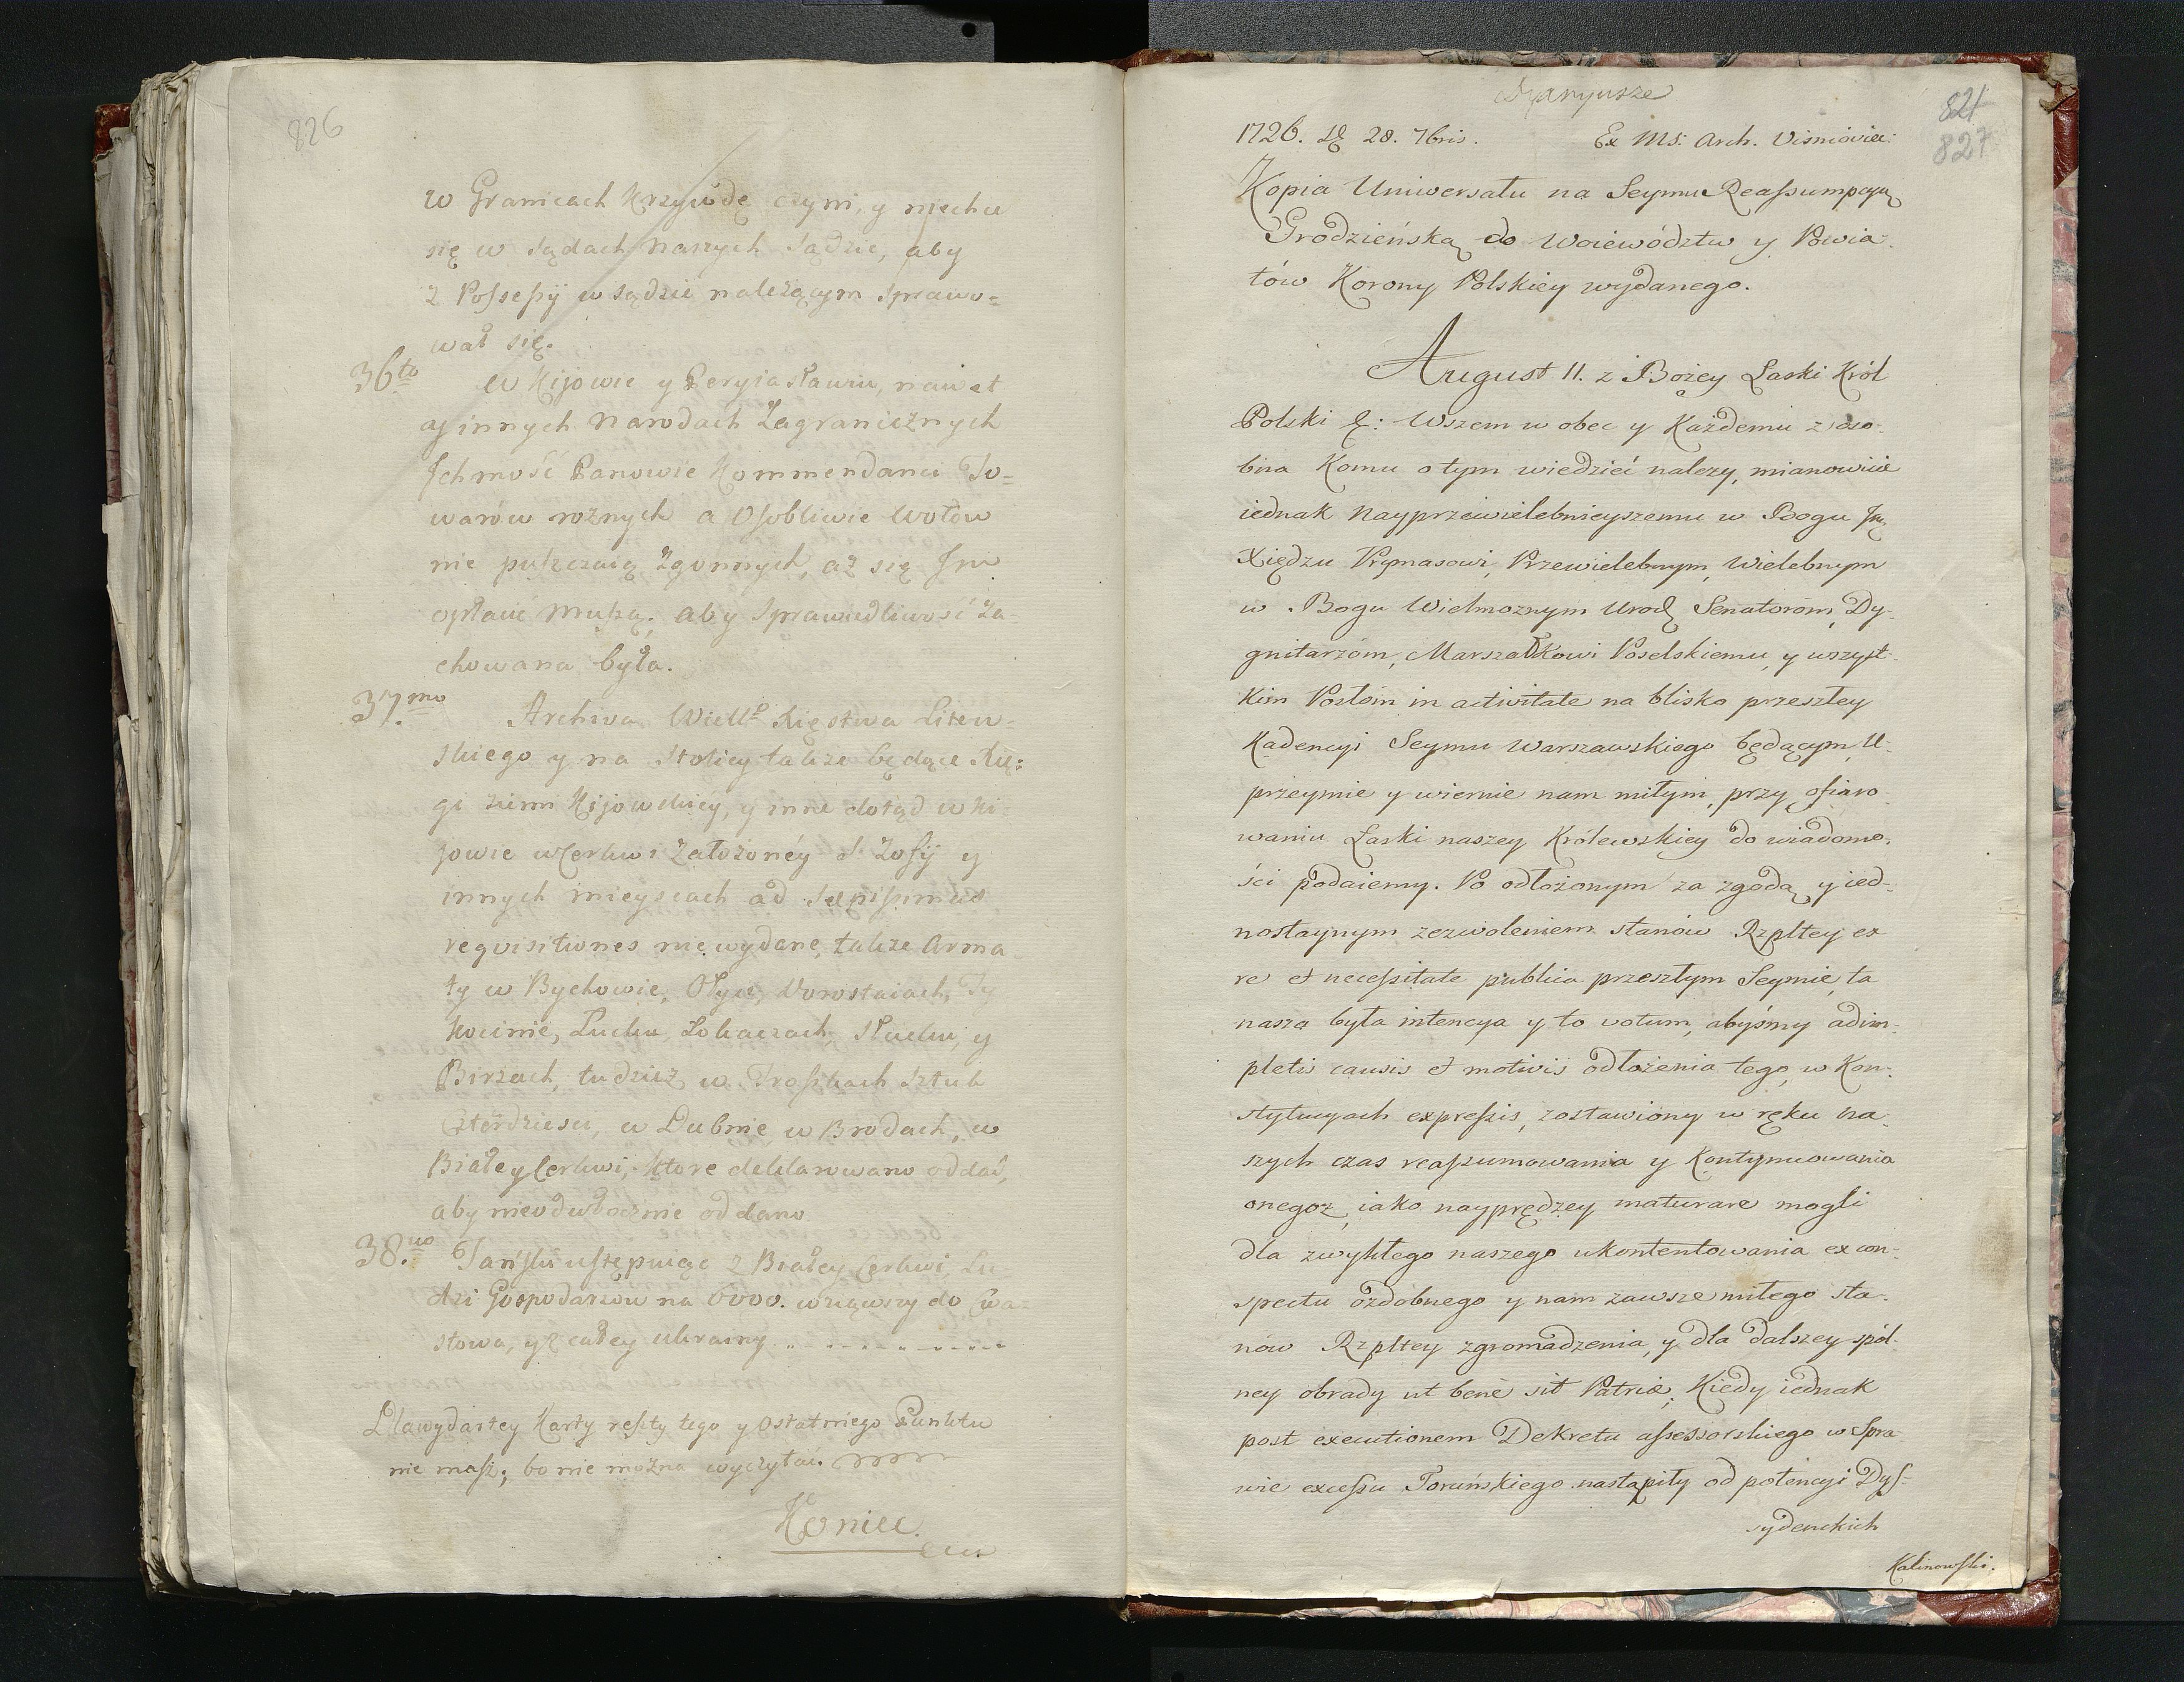 826
w Granicach Krzywdę czyni, y niechce
się w sądach naszych sądzić, aby
z Possessÿ w sądzie należącym sprawo=
wał się.
36to W Kijowie y Peryiasławiu, nawet
y innych Narodach Zagranicznych
Ichmość Panowie Kommendanci To=
warów roznych a Osobliwie Wołów
nie puszczaią Zgonnych, aż się Im
opłacić muszą; aby Sprawiedliwość Za=
chowana była.
37.mo Archiva Wiellº Xięstwa Litew=
skiego y na Stolicy także będące Xię=
gi ziemi Kijowskiey, y inne dotąd w Ki
jowie w Cerkwi Założonéy S. Zofÿ y
innych mieyscach ad sæpissimas
requisitiones nie wydane, także Arma
ty w Bychowie, Ołyce, Worostaiach, Ty
kocinie, Łucku, Łokaczach, Słucku, y
Birżach, tudzież w Proszkach Sztuk
Czterdzieści, w Dubnie, w Brodach, w
Białey Cerkwi, ktore deklarowano oddać,
aby nieodwłocznie oddano
38.vo Tański ustępuiąc z Białey Cerkwi, Lu
dzi Gospodarzów na 6000. wziąwszy do Chwa=
stowa, y z całey Ukrainy
Dla wydartey Karty reszty tego y Ostatniego Punktu
nie masz; bo nie można wyczytać.
Koniec.
821
827
1726. D 28. 7bris. Ex Ms. Arch. Visnioviec:
Kopia Uniwersału na Seymu Reassumpcyą
Grodzieńską do Woiewództw y Powia-
tów Korony Polskiey wydanego.
August II. z Bożey Łaski Król
Polski &: Wszem w obec y Każdemu z oso-
bna Komu o tym wiedzieć nalezy, mianowicie
iednak Nayprzewielebnieyszemu w Bogu Jm
Xiędzu Prymasowi, Przewielebnym, Wielebnym
w Bogu Wielmoznym Urod Senatoróm, Dy-
gnitarzóm, Marszałkowi Poselskiemu, y wszyst-
kim Posłóm in activitate na blisko przeszłey
Kadencyi Seymu Warszawskiego będącym, U-
przeymie y wiernie nam miłym, przy ofiaro
waniu Łaski naszey Królewskiey do wiadomo-
ści podaiemy. Po odłożonym za zgodą y ied-
nostaynym zezwoleniem stanów Rzpltey ex
re et necessitate publica przeszłym Seymie, ta
nasza była intencya y to votum, abyśmy adim-
pletis causis et motivis odłożenia tego, w Kon-
stytucyach expressis, zostawiony w ręku na-
szych czas reassumowania y Kontynuowania
onegoż, iako nayprędzey maturare mogli
dla zwykłego naszego ukontentowania ex con-
spectu ozdobnego y nam zawsze miłego sta-
nów Rzpltey zgromadzenia, y dla dalszey spól-
ney obrady ut bene sit Patriæ; Kiedy iednak
post executionem Dekretu assessorskiego w Spra
wie excessu Toruńskiego nastąpiły od potencyi Dys-
sydenckich
Kalinowski.